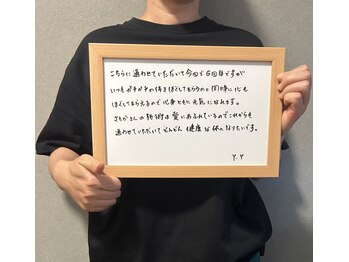 こちらに通わせていただいて今回で6回目ですが
いつもガチガチの体をほぐしてもらうのと同時に心も
ほぐしてもらえるので心身ともに元気になれます。
さんの施術は愛にあふれているのでこれからも
通わせていただいてどんどん健康な体になりたいです。
Y.Y